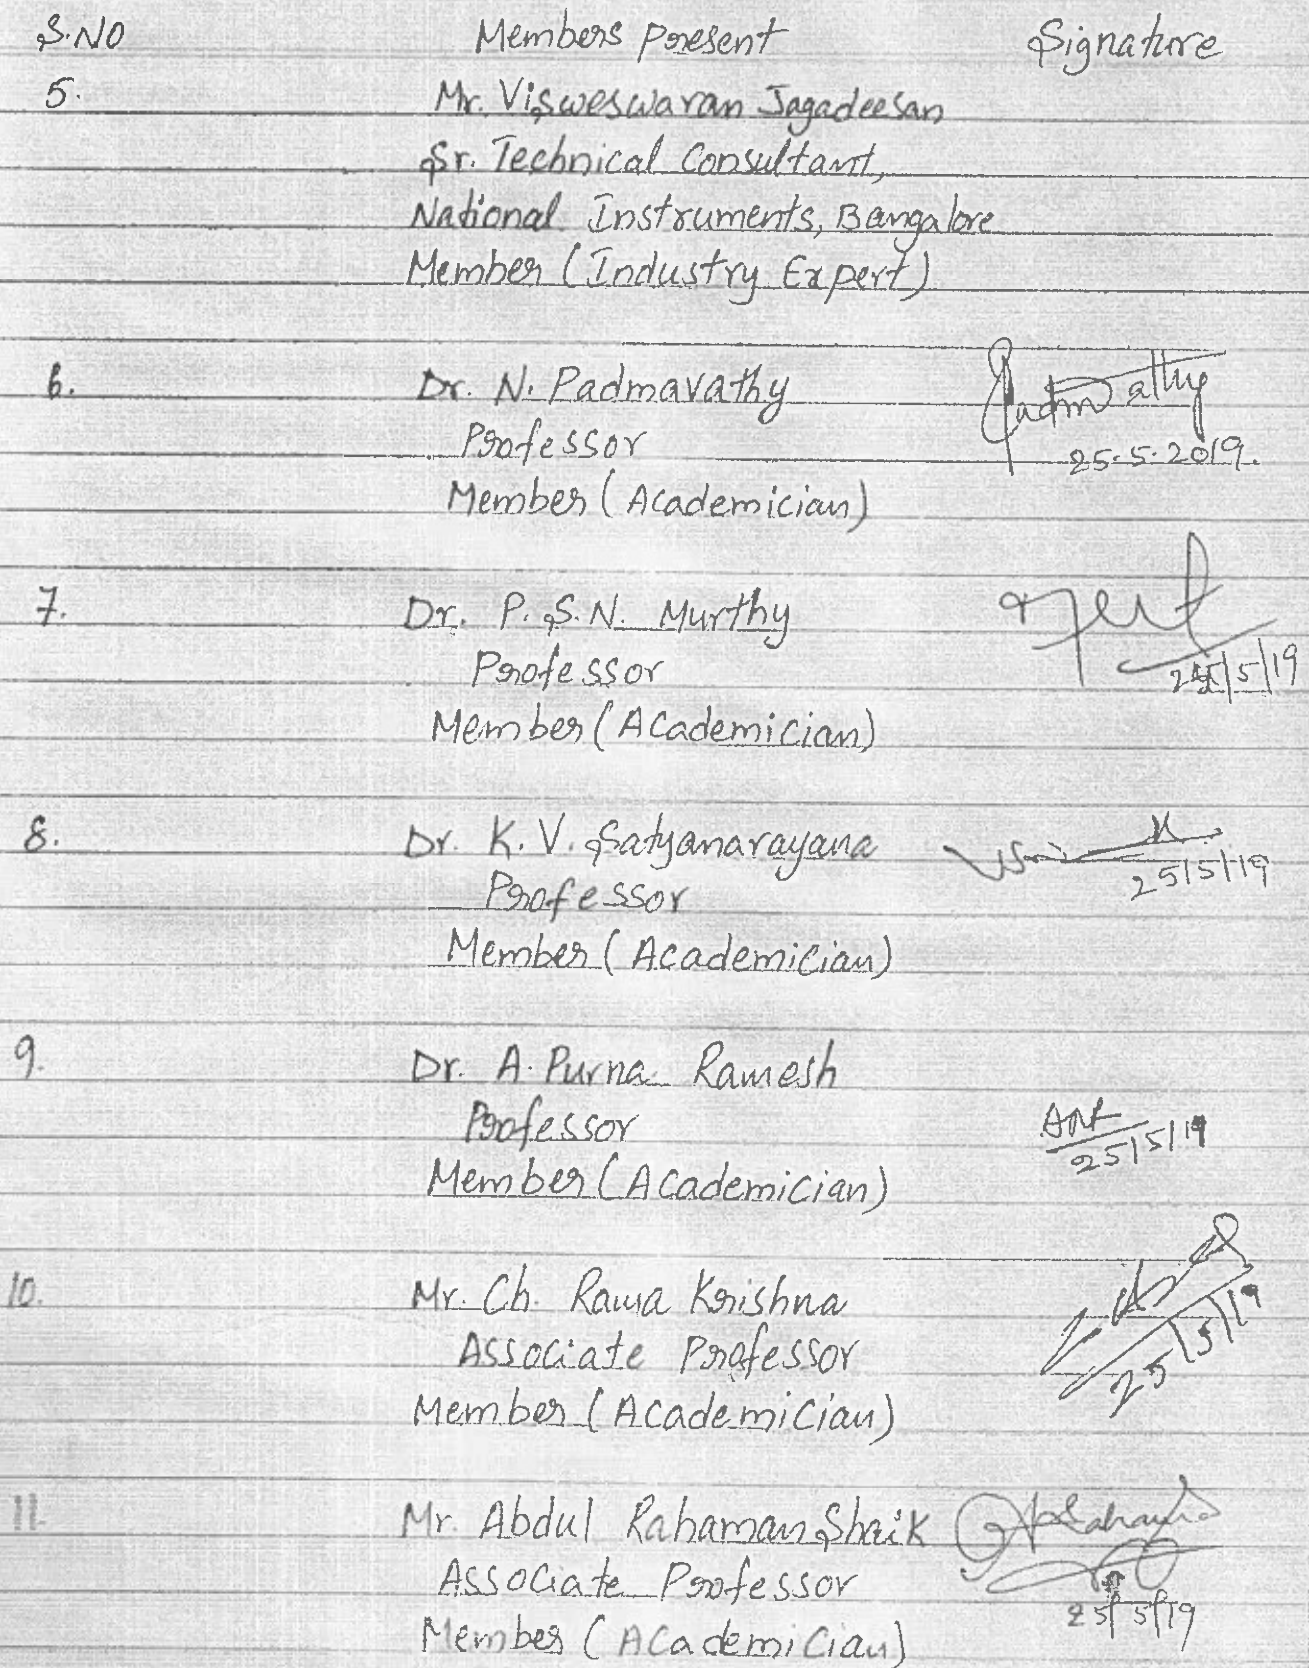 S.NO Members Present Signature
5. Mr. Visweswaran Jagadeesan
Sr. Technical Consultant,
National Instruments, Bangalore
Member (Industry Expert)
6. Dr. N. Padmavathy Padmavathy
Professor 25.5.2019.
Member (Academician)
7. Dr. P. S.N. Murthy
Professor 25/5/19
Member (Academician)
8. Dr. K. V. Satyanarayana
25/5/19
Professor
Member (Academician)
9. Dr. A. Purna Ramesh
Professor
25/5/19
Member (Academician)
10. Mr. Ch. Rama Krishna
Associate Professor 25/5/19
Member (Academician)
11. Mr. Abdul Rahaman Shaik
Associate Professor
25/5/19
Member (Academician)